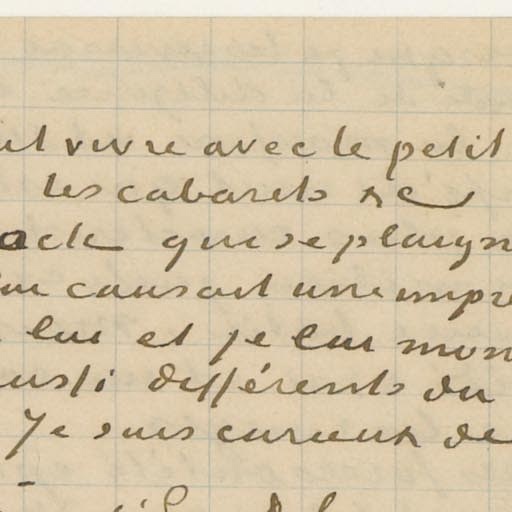 vivre avec le petit
les cabarets
qui se plaign
causait une impre
lui et je lui mon
aussi différents du
Je suis curieux de